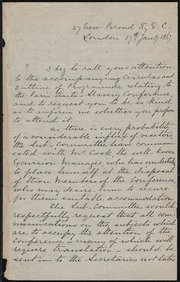 27 New Broad St, E.C.
London 17th Jany 1867
I beg to call your attention
to the accompanying Circular and
outline of Programme relating to
the Paris Anti-Slavery Conference
and to request you to be so kind
as to inform me whether you propose
to attend it.
As there is every probability
of a considerable influx of
the Sub-Committee have
called
Excursion Manager, who has undertaken
to place himself at the disposal
of those members of the Conference
who may desire him to secure
for them suitable accommodation.
The Sub-Committee would
respectfully request that all com-
munications on the subjects which
are to occupy the attention of the
Conference, & many of which will
require translation, should be
sent in to the Secretaries not later